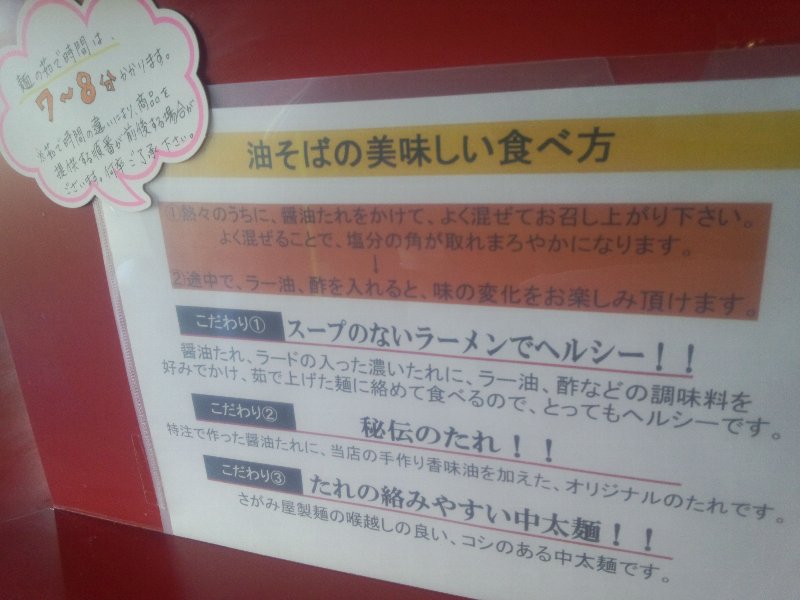 麺の茹で時間は、
7～8分かかります。
※茹で時間の違いにより、商品を
提供する順番が前後する場合が
ございます。何卒ご了承下さい。
油そばの美味しい食べ方
①熱々のうちに、醤油たれをかけて、よく混ぜてお召し上がり下さい。
よく混ぜることで、塩分の角が取れまろやかになります。
↓
②途中で、ラー油、酢を入れると、味の変化をお楽しみ頂けます。
こだわり① スープのないラーメンでヘルシー！！
醤油たれ、ラードの入った濃いたれに、ラー油、酢などの調味料を
好みでかけ、茹で上げた麺に絡めて食べるので、とってもヘルシーです。
こだわり② 秘伝のたれ！！
特注で作った醤油たれに、当店の手作り香味油を加えた、オリジナルのたれです。
こだわり③ たれの絡みやすい中太麺！！
さがみ屋製麺の喉越しの良い、コシのある中太麺です。